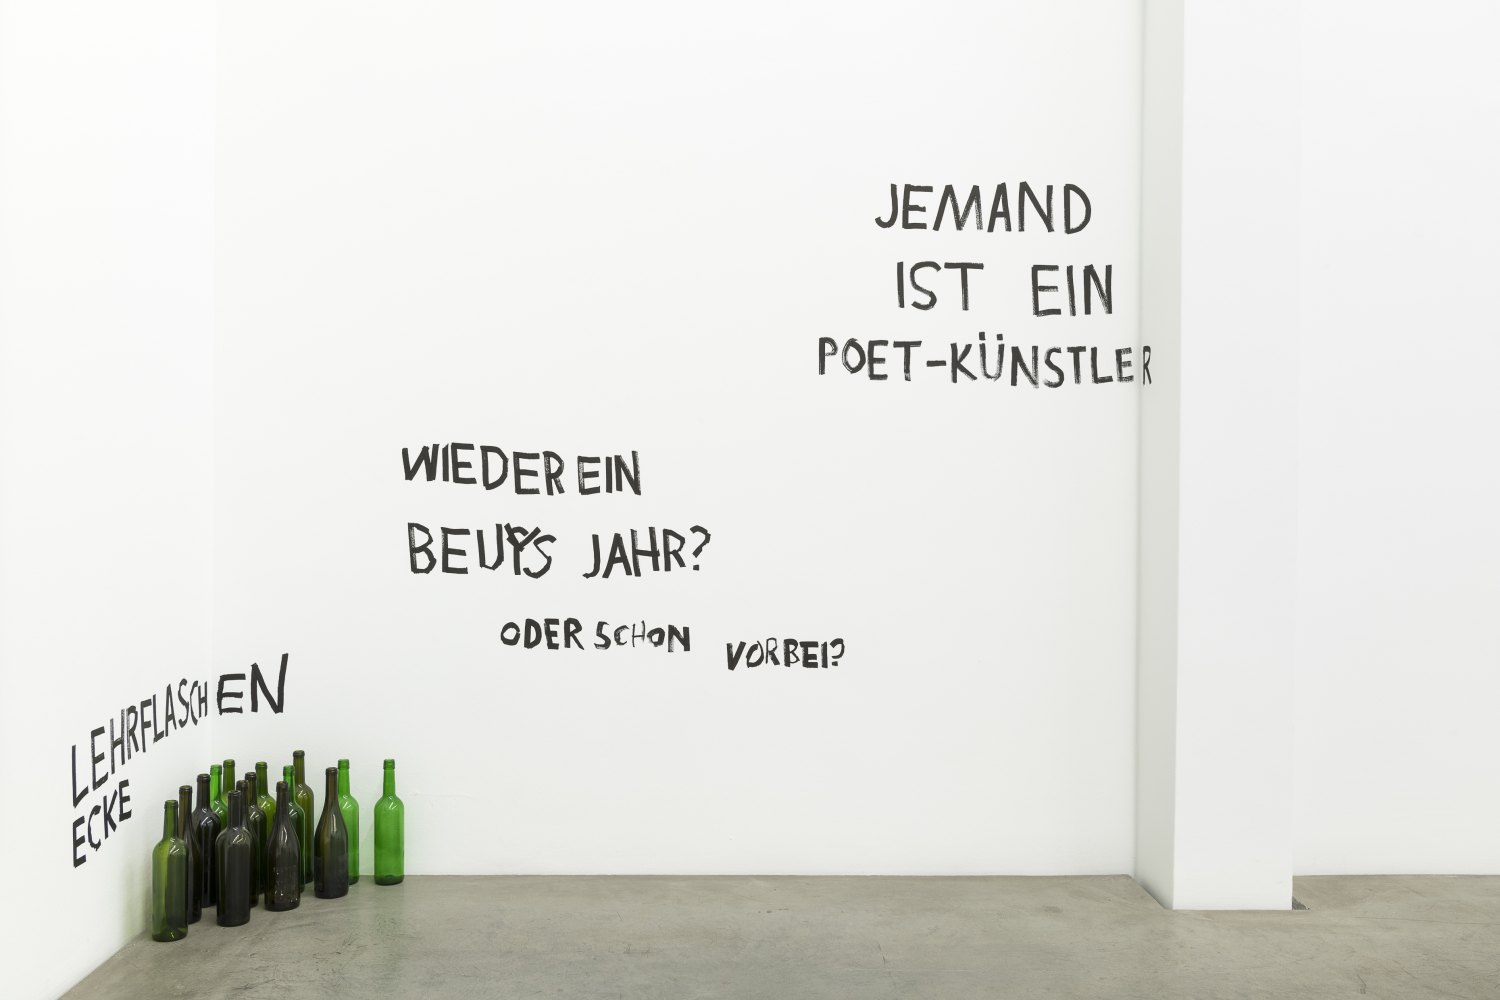 JEMAND
IST EIN
POET-KÜNSTLER
WIEDER EIN
BEUYS JAHR?
ODER SCHON VORBEI?
LEHRFLASCHEN
ECKE